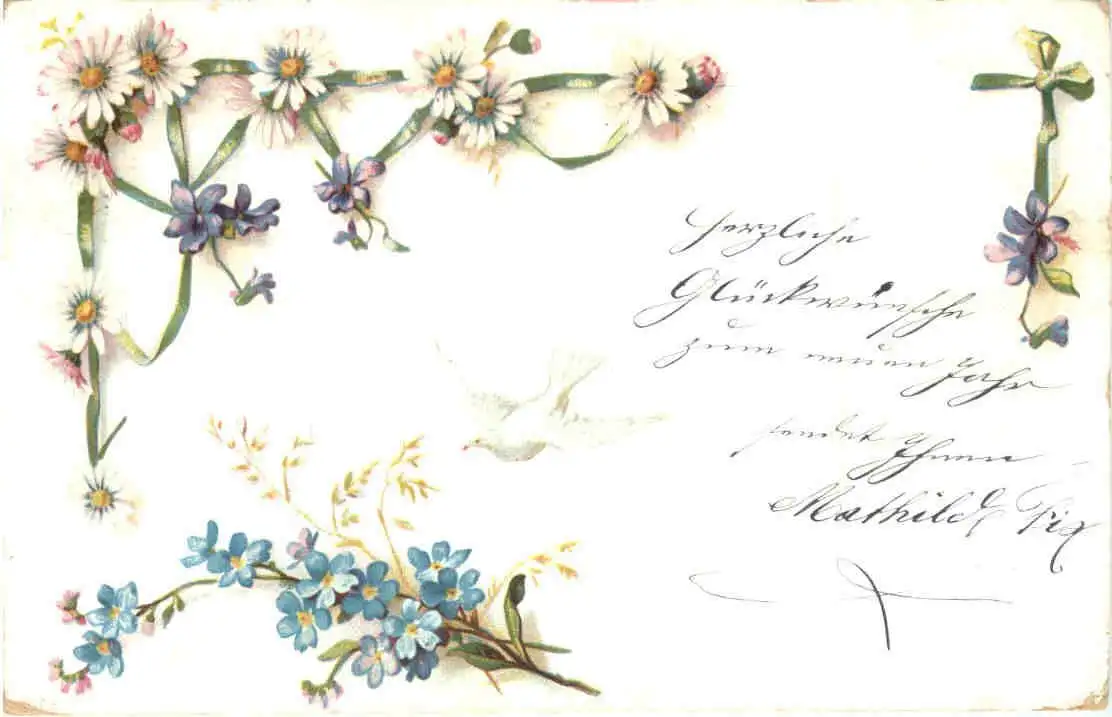 Herzliche
Glückwünsche
zum neuen Jahr
sendet Ihnen
Mathilde Fix